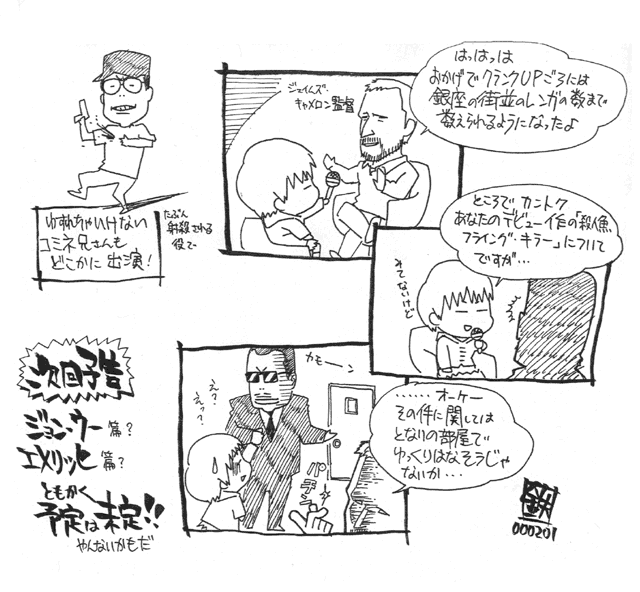 はっはっは
おかげでクランクUPごろには
銀座の街並のレンガの数まで
数えられるようになったよ
ジェイムズ・
キャメロン監督
ゆずれちゃいけない
コミネ兄さんも
どこかに出演!
たぶん
射殺される
役で
ところでカントク
あなたのデビュー作の「殺人魚
フライング・キラー」について
ですが…
みてないけど
カモーン
え?
えっ?
パチン
……オーケー
その件に関しては
となりの部屋で
ゆっくりはなそうじゃ
ないか…
次回予告
ジョン・ウー篇?
エメリッヒ篇?
ともかく
予定は未定!!
やんないかもだ
鉄
000201